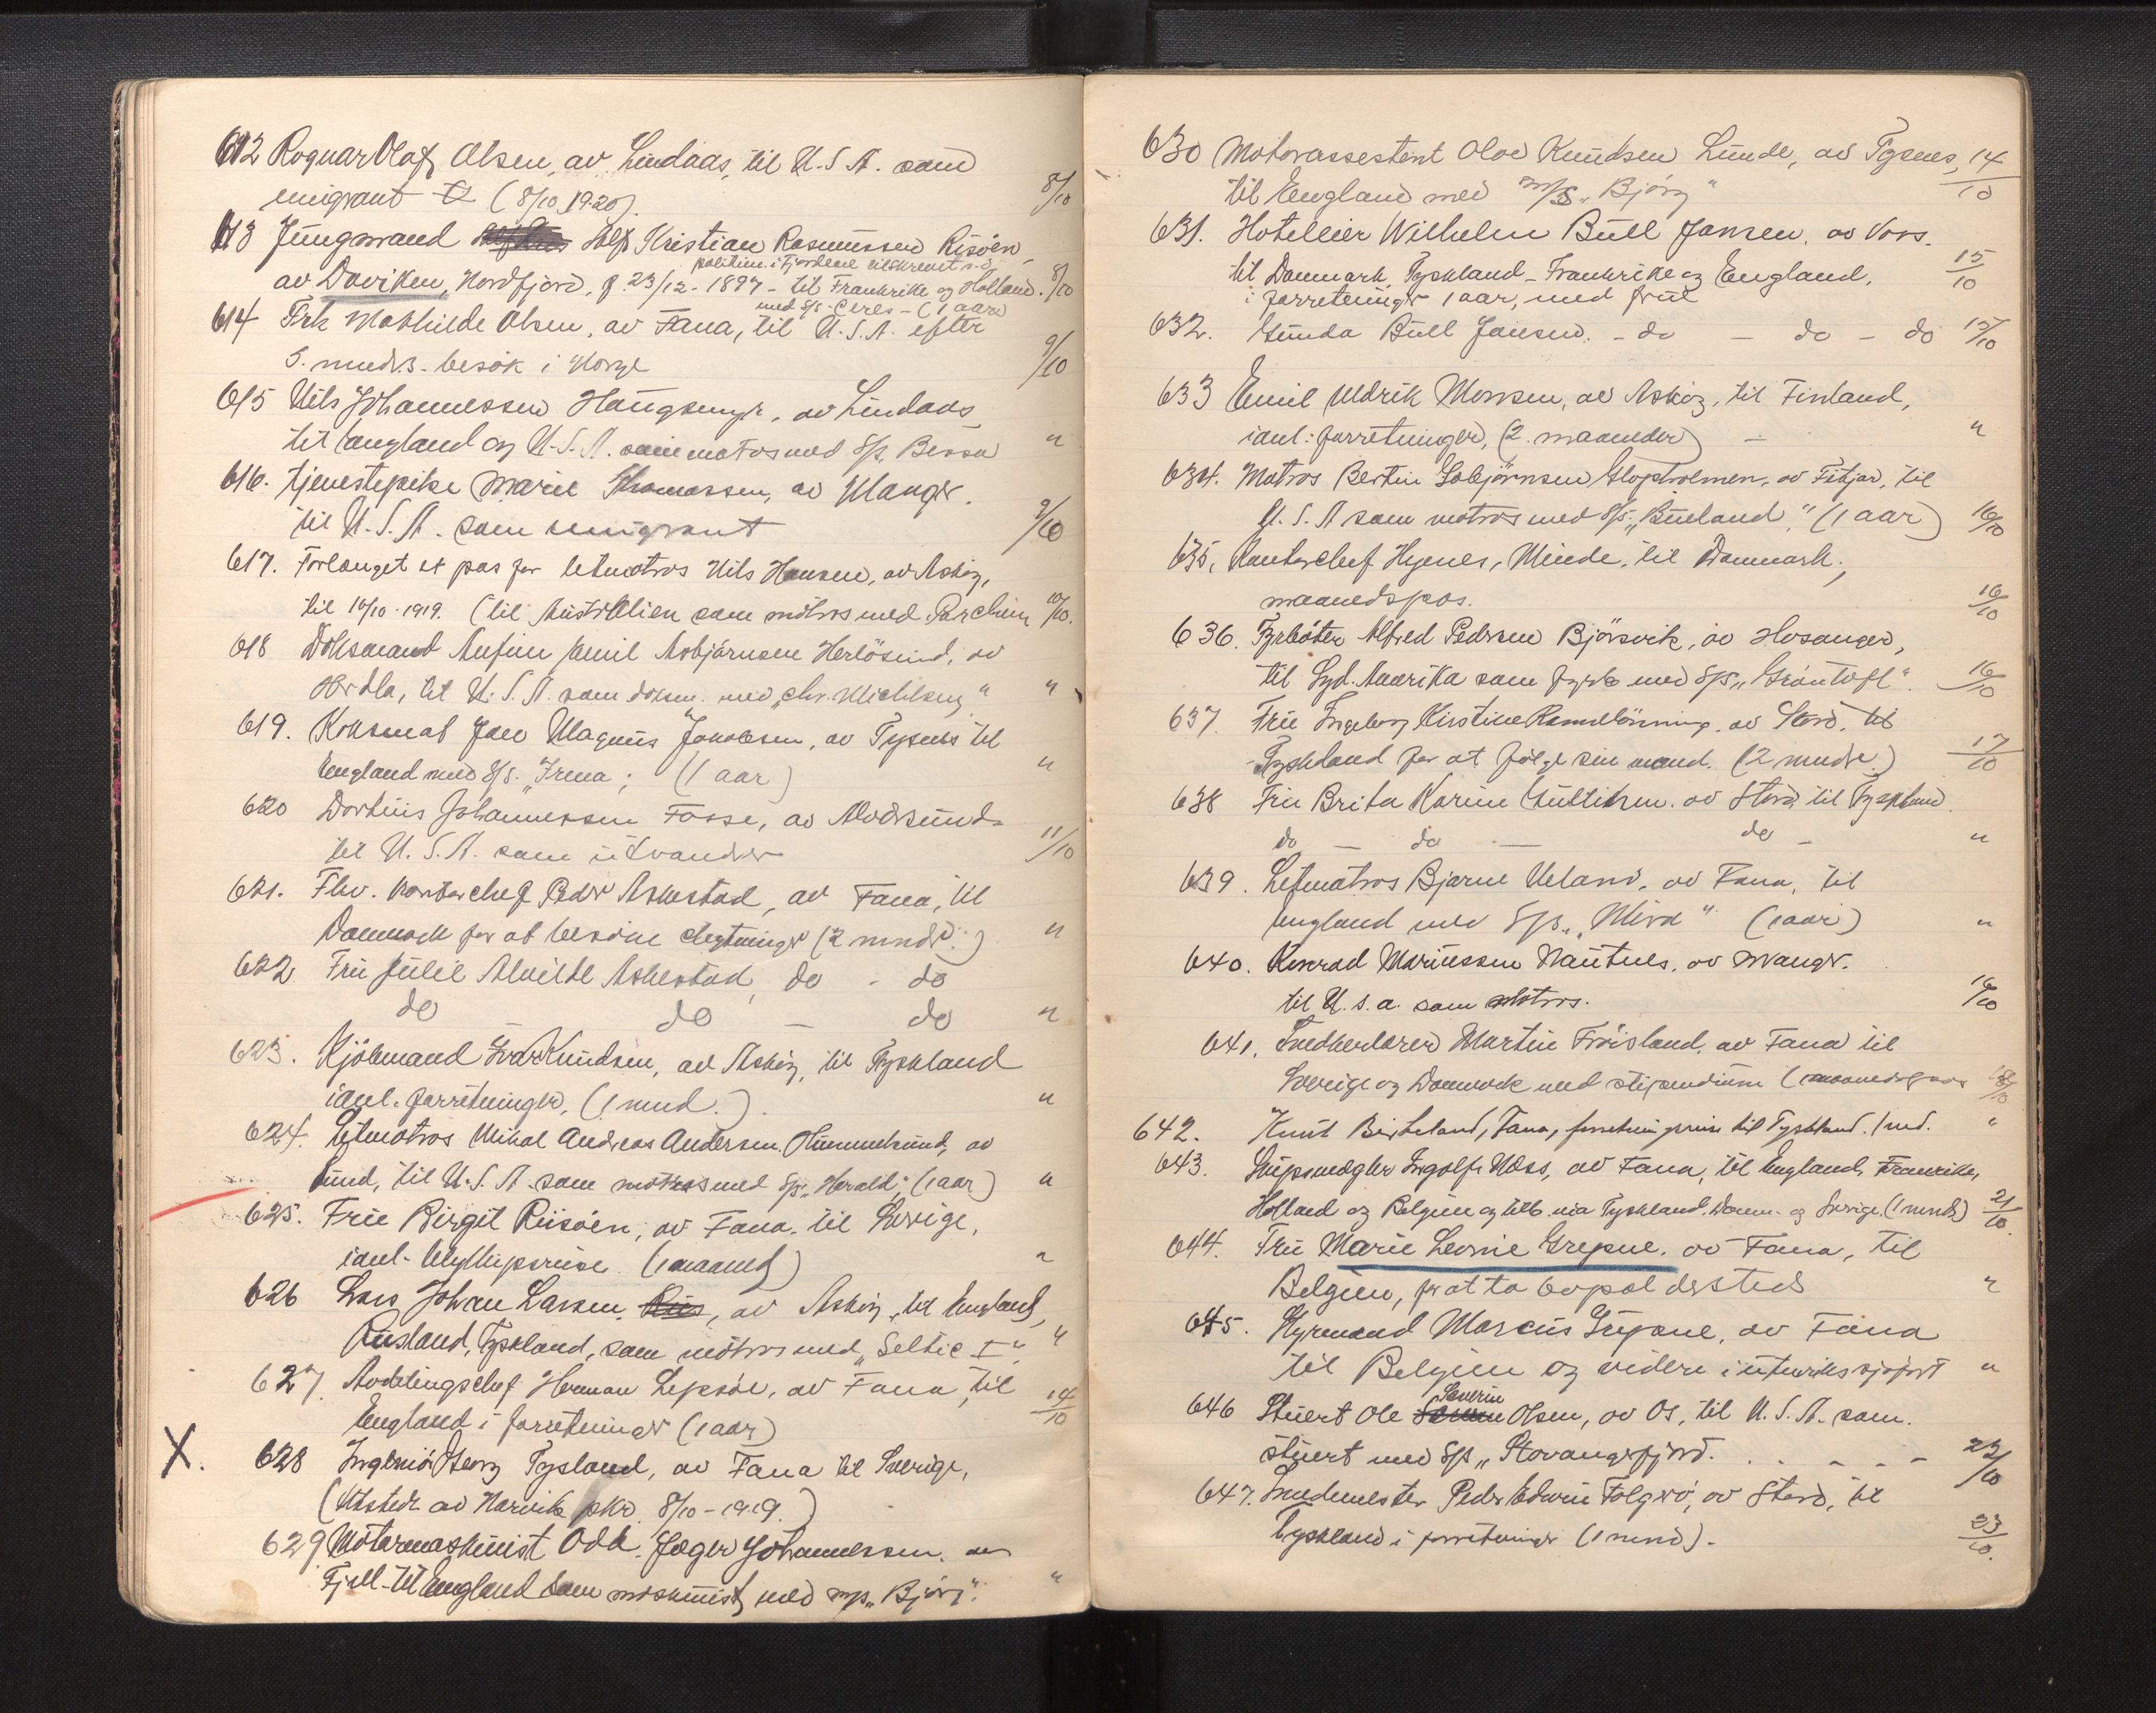 612 Ragnar Olaf Olsen, av Lindaas, til U.S.A. som
emigrant (8/10 1920). 8/10
613 Jungmand Kristian Rasmussen Risöen,
politim. i Fjordene tilskrevet s.d.
av Daviken, Nordfjord, f. 23/12-1897 - til Frankrike og Holland. 8/10
med s/s Ceres - (1 aar)
614 Frk Mathilde Olsen, av Fana, til U.S.A. efter
5. mndrs. besök i Norge 9/10
615 Nils Johannessen Haugsmyr, av Lindaas
til England og U.S.A. som matros med S/s. Bessa "
616. tjenestepike Marie Thomassen, av Manger.
til U.S.A. som emigrant 9/10
617. Forlænget et pas for letmatros Nils Hansen, av Asköy,
til 10/10-1919. (til Australien som matros med Parchim 10/10.
618 Dæksmand Anfinn Emil Asbjörnsen Herlösund, av
Herdla, til U.S.A. som dæksm. med "Chr. Michelsen" "
619. Koksmat Jan Magnus Jakobsen, av Tysnes til
England med S/s. "Irma; (1 aar) "
620 Dortius Johannessen Fosse, av Alversund
til U.S.A. som utvandrer 11/10
621. Fhv. kontorchef Peder Askestad, av Fana, til
Danmark for at besöke slegtninger (2 mndr.) "
622 Fru Julie Alvilde Askestad, do - do
do - do - do "
623. Kjöbmand Ivar Knudsen, av Asköy, til Tyskland
i anl. forretninger, (1 mnd.). "
624. Letmatros Mikal Andreas Andersen Hummelsund, av
Sund, til U.S.A. som matros med S/s. "Herald", (1 aar) "
625. Frue Birgit Riisöen, av Fana, til Sverige,
i anl. bryllupsreise. (1 maaned) "
626 Lars Johan Larsen, av Asköy, til England,
Rusland, Tyskland, som matros med "Seltic I". "
627. Avdelingschef Herman Lepsöe, av Fana, til
England i forretninger (1 aar) 14/10
X. 628 Ingeniör Georg Tysland, av Fana til Sverige,
(Utstedt av Narvik pkr. 8/10-1919.)
629 Motormaskinist Odd Jæger Johannessen. av
Fjell - til England som maskinist med m/s "Björg". "
630 Motorassestent Olav Knudsen Lunde, av Tysnes, 14/10
til England med m/s "Björg"
631. Hotelleier Wilhelm Büll Jansen. av Voss.
til Danmark, Tyskland - Frankrike og England, 15/10
i forretninger 1 aar, med frue
632. Gunda Büll Jansen. - do - do - do 15/10
633 Emil Uldrik Monsen, av Asköy, til Finland,
i anl. forretninger, (2. maaneder) - "
634. Matros Bertin Gabjörnsen, av Fitjar, til
U.S.A som matros med S/s. "Bueland", (1 aar) 16/10
635, Kontorchef Hysnes, Minde, til Danmark,
maanedspas. 16/10
636. Fyrböter Alfred Pedersen Björsvik, av Hosanger,
til Syd-Amerika som fyrb med S/s, "Gröntoft". 16/10
637. Frue Ingeborg Kirstine Rommelönning, av Stord, til
Tyskland for at fölge sin mand. (2 mndr.) 17/10
638 Fru Brita Karine. av Stord, til Tyskland.
do - do - do - "
639. Letmatros Bjarne Ueland, av Fana, til
England med S/s, "Mira" (1 aar) "
640. Konrad Mariussen Nautnes, av Manger.
til U.S.A. som matros. 16/10
641. Snedkerlærer Martin Fröisland, av Fana til
Sverige og Danmark med stipendium (maanedspas 18/10
642. Knut Birkeland, Fana, forretningsreise til Tyskland. 1 md. "
643. Skipsmægler Ingolf Næss, av Fana, til England, Frankrike,
Holland og Belgien og tilb. via Tyskland. Danm. og Sverige. (1 mnd) 21/10
644. Fru Marie Leonie Grepne, av Fana, til
Belgien, for at ta bopæl dersteds "
645. Styrmand Marcus Grepne, av Fana
til Belgien og videre i utenriks sjöfart "
646 Stuert Ole Severin Olsen, av Os, til U.S.A. som.
stuert med S/s "Stavangerfjord. 22/10
647. Smedmester Peder Edvin Folgerö, av Stord, til
Tyskland i forretninger (1 mnd). 23/10.